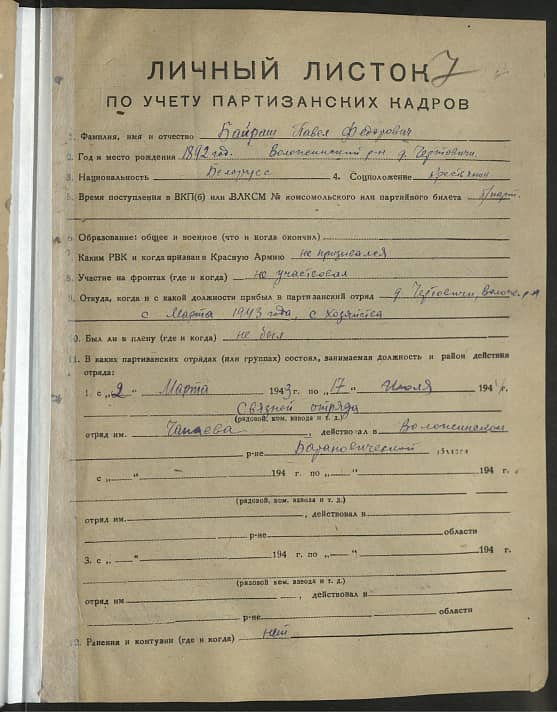 ЛИЧНЫЙ ЛИСТОК 7
ПО УЧЕТУ ПАРТИЗАНСКИХ КАДРОВ
1. Фамилия, имя и отчество Байраш Павел Федорович
2. Год и место рождения 1892 год. Воложинский р-н д. Чертовичи
3. Национальность Белорусс 4. Соцположение крестьянин
5. Время поступления в ВКП(б) или ВЛКСМ № комсомольского или партийного билета б/парт.
6. Образование: общее и военное (что и когда окончил)
7. Каким РВК и когда призван в Красную Армию не призывался
8. Участие на фронтах (где и когда) не участвовал
9. Откуда, когда и с какой должности прибыл в партизанский отряд д. Чертовичи, Волож. р-н
с Марта 1943 года, с хозяйства
10. Был ли в плену (где и когда) не был
11. В каких партизанских отрядах (или группах) состоял, занимаемая должность и район действия
отряда:
1. с „2 “ Марта 1943 г. по „17 “ Июля 1944 г.
Связной отряда
(рядовой, ком. взвода и т. д.)
отряд им. Чапаева , действовал в Воложинском
р-не Барановической области
с „—“ 194 г. по „—“ 194 г.
(рядовой, ком. взвода и т. д.)
отряд им. , действовал в
р-не области
3. с „—“ 194 г. по „—“ 194 г.
(рядовой ком. взвода и т. д.)
отряд им , действовал в
р-не области
12. Ранения и контузии (где и когда) нет